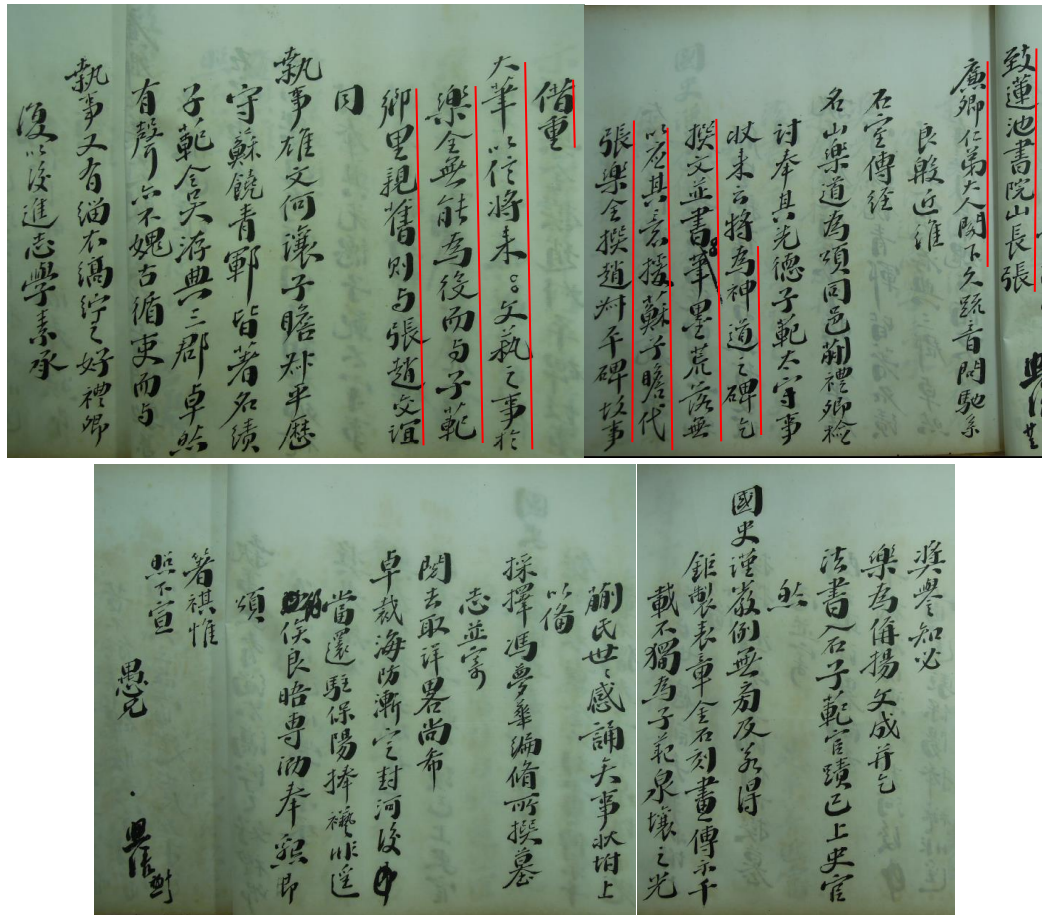 致蓮池書院山長張
廉卿仁弟大人閣下久疏音問馳系
良殷近維
石室傳經
名山樂道為頌同邑蒯禮卿檢
討奉其先德子範太守事
狀來云將為神道之碑乞
撰文並書筆墨荒落無
以應其意援蘇子瞻代
張樂全撰趙叔平碑故事
借重
大筆以信將來文蓺之事於
樂全無能為役而與子範
鄉里親舊則與張趙交誼
同
執事雄文何讓子瞻叔平歷
守蘇饒青鄆皆著名績
子範令吳洊典三郡卓然
有聲亦不媿古循吏而與
執事又有緇衣縞紵之好禮卿
復以後進志學素承
獎譽知必
樂為揚文成并乞
法書入石子範官蹟已上史官
然
國史謹嚴例無旁及若得
鉅製表章金石刻畫傳示千
載不獨為子範泉壤之光
蒯氏世〻感誦矣事狀坿上
以備
採擇馮夢華編脩所撰墓
志並寄
閱去取詳畧尚希
卓裁海防漸定封河後
當還駐保陽捧襼非遥
餘俟良晤專泐奉懇即
頌
箸祺惟
照不宣
愚兄